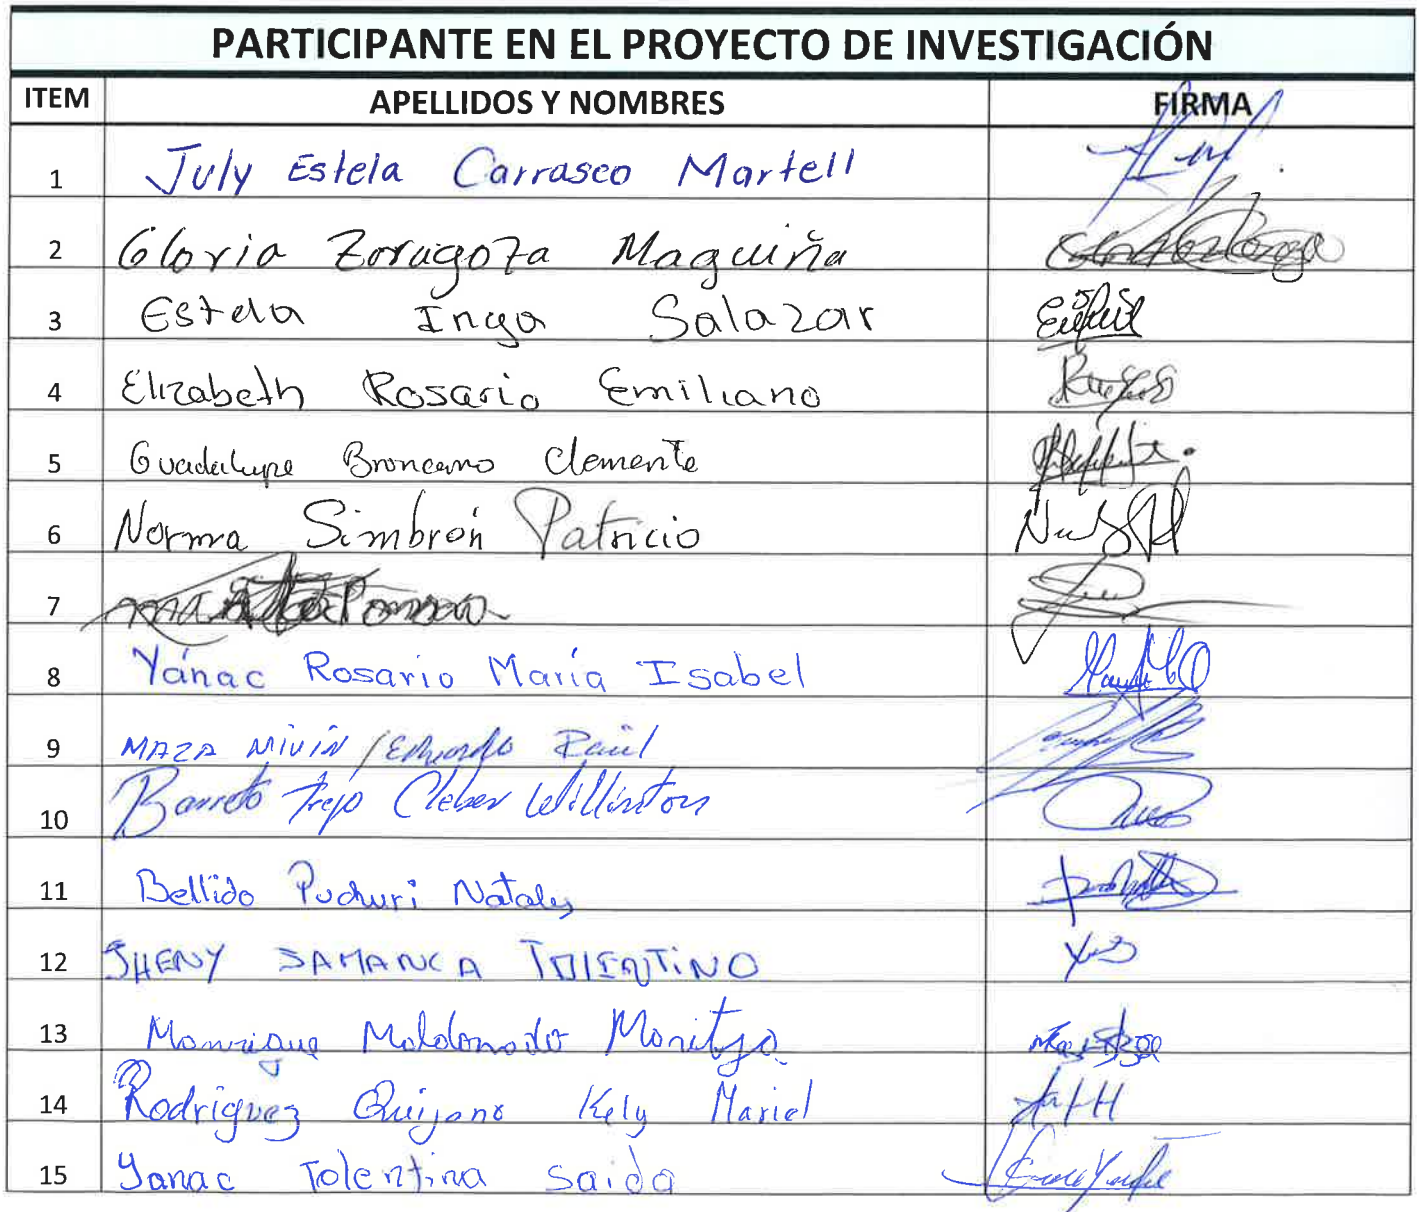 PARTICIPANTE EN EL PROYECTO DE INVESTIGACIÓN
ITEM APELLIDOS Y NOMBRES FIRMA
1 July Estela Carrasco Martell
2 Gloria Zoragoza Maguiña
3 Estela Inga Salazar
4 Elizabeth Rosario Emiliano
5 Guadalupe Broncano Clemente
6 Norma Simbrón Patricio
7
8 Yánac Rosario María Isabel
9 MAZA NIVIN Raúl
10 Barreto Trejo Cleber Willinton
11 Bellido Puchuri Natales
12 JHENY SAMANCA TOLENTINO
13 Manrique Maldonado Maritza
14 Rodriguez Quijano Kely Mariel
15 Yanac Tolentina Saida